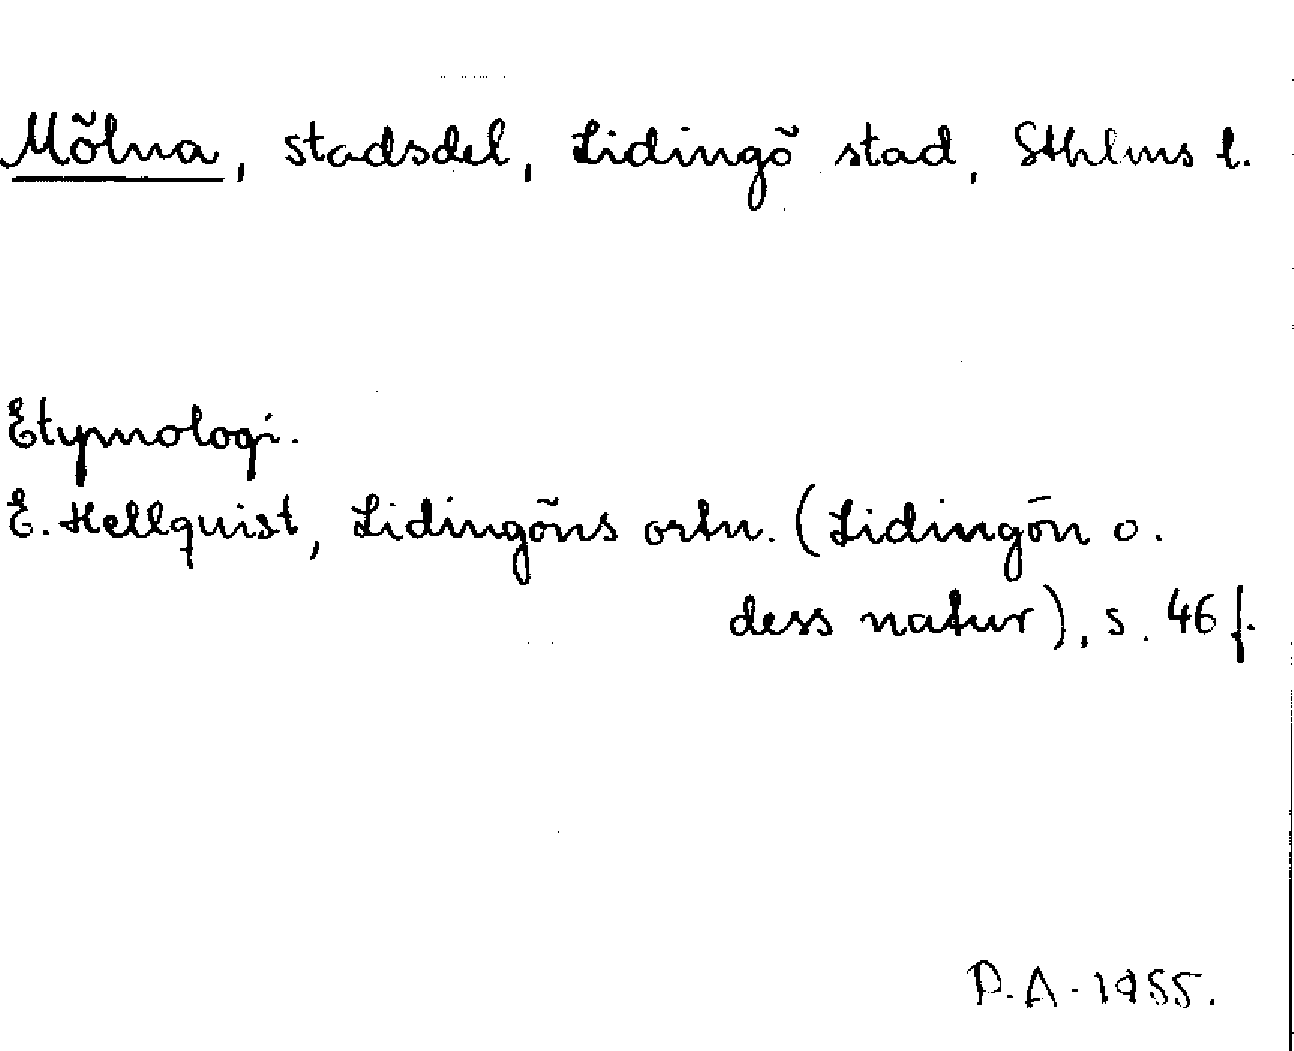 Mölna, stadsdel, Lidingö stad, Sthlms l.
Etymologi.
E. Hellquist, Lidingöns ortn. (Lidingön o.
dess natur), s. 46 f.
P.A. 1955.